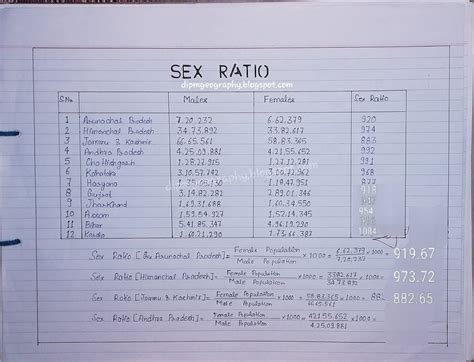 SEX RATIO
dipmgeography.blogspot.com
S.No. Males Females Sex Ratio
1 Arunachal Pradesh 7.20.232 6.62.379 920
2 Himanchal Pradesh 34.73.892 33.82.617 974
3 Jammu & Kashmir 66.65.561 58.83.365 883
4 Andhra Pradesh 4.25.09.881 4.21.55.652 992
5 Chattishgarh 1.28.27.915 1.27.12.281 991
6 3.10.57.742 3.00.72.962
7 Haryana 1.18.47.951 877
8 Gujrat 3.14.82.282 2.89.01.346 918
9 Jharkhand 1.69.31.688 1.60.34.550
10 Assam 1.59.54.927 1.52.14.345 954
11 Bihar 5.41.85.347 4.96.19.290
12 Kerala 1.60.21.290 1.73.66.387 1084
Sex Ratio Arunachal Pradesh] = Female Population / Male Population × 1000 = 6.62.379 / 7.20.232 × 1000 = 919.67
Sex Ratio [Himanchal Pradesh] = Female Population / Male Population × 1000 = 3382.617 / 34.73.892 × 1000 = 973.72
Sex Ratio [Jammu & Kashmir] = Female Population / Male Population × 1000 = 58.83.365 / 66.65.561 × 1000 = 88 882.65
Sex Ratio [Andhra Pradesh] = Female Population / Male Population × 1000 = 421.55.652 / 4.25.09.881 × 1000 =